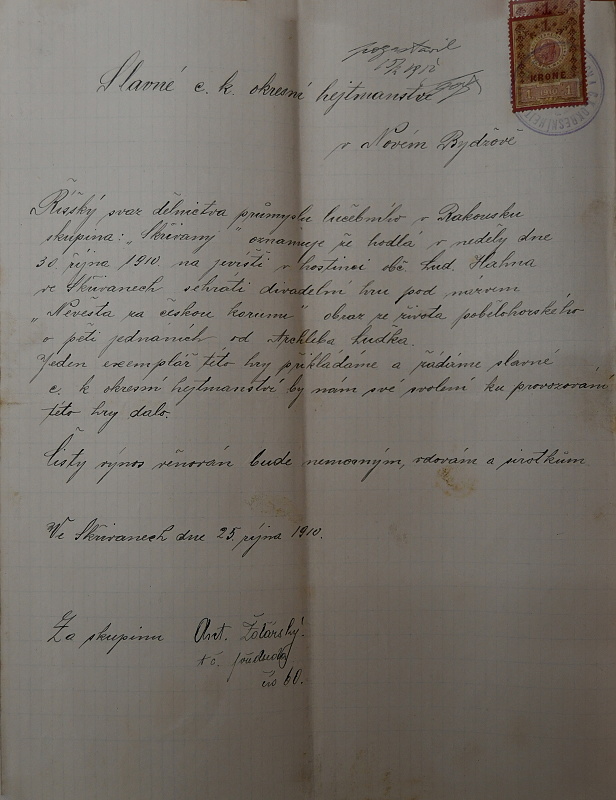 pozastavil
1910
KRONE
1 1910 1
Slavné c. k. okresní hejtmanství
v Novém Bydžově
Říšský svaz dělnictva průmyslu lučebního v Rakousku
skupina: „Skřivany" oznamuje že hodlá v neděly dne
30. října 1910 na jevišti v hostinci obč. Lud. Hahna
ve Skřivanech sehráti divadelní hru pod názvem
„Nevěsta za českou korunu" obraz ze života pobělohorského
o pěti jednáních od Archleba Luďka.
Jeden exemplář této hry přikládáme a žádáme slavné
c. k okresní hejtmanství by nám své svolení ku provozování
této hry dalo.
Čistý výnos věnován bude nemocným, vdovám a sirotkům
Ve Skřivanech dne 25. října 1910.
Za skupinu Ant. Žďárský.
t. č. předseda
čís 60.